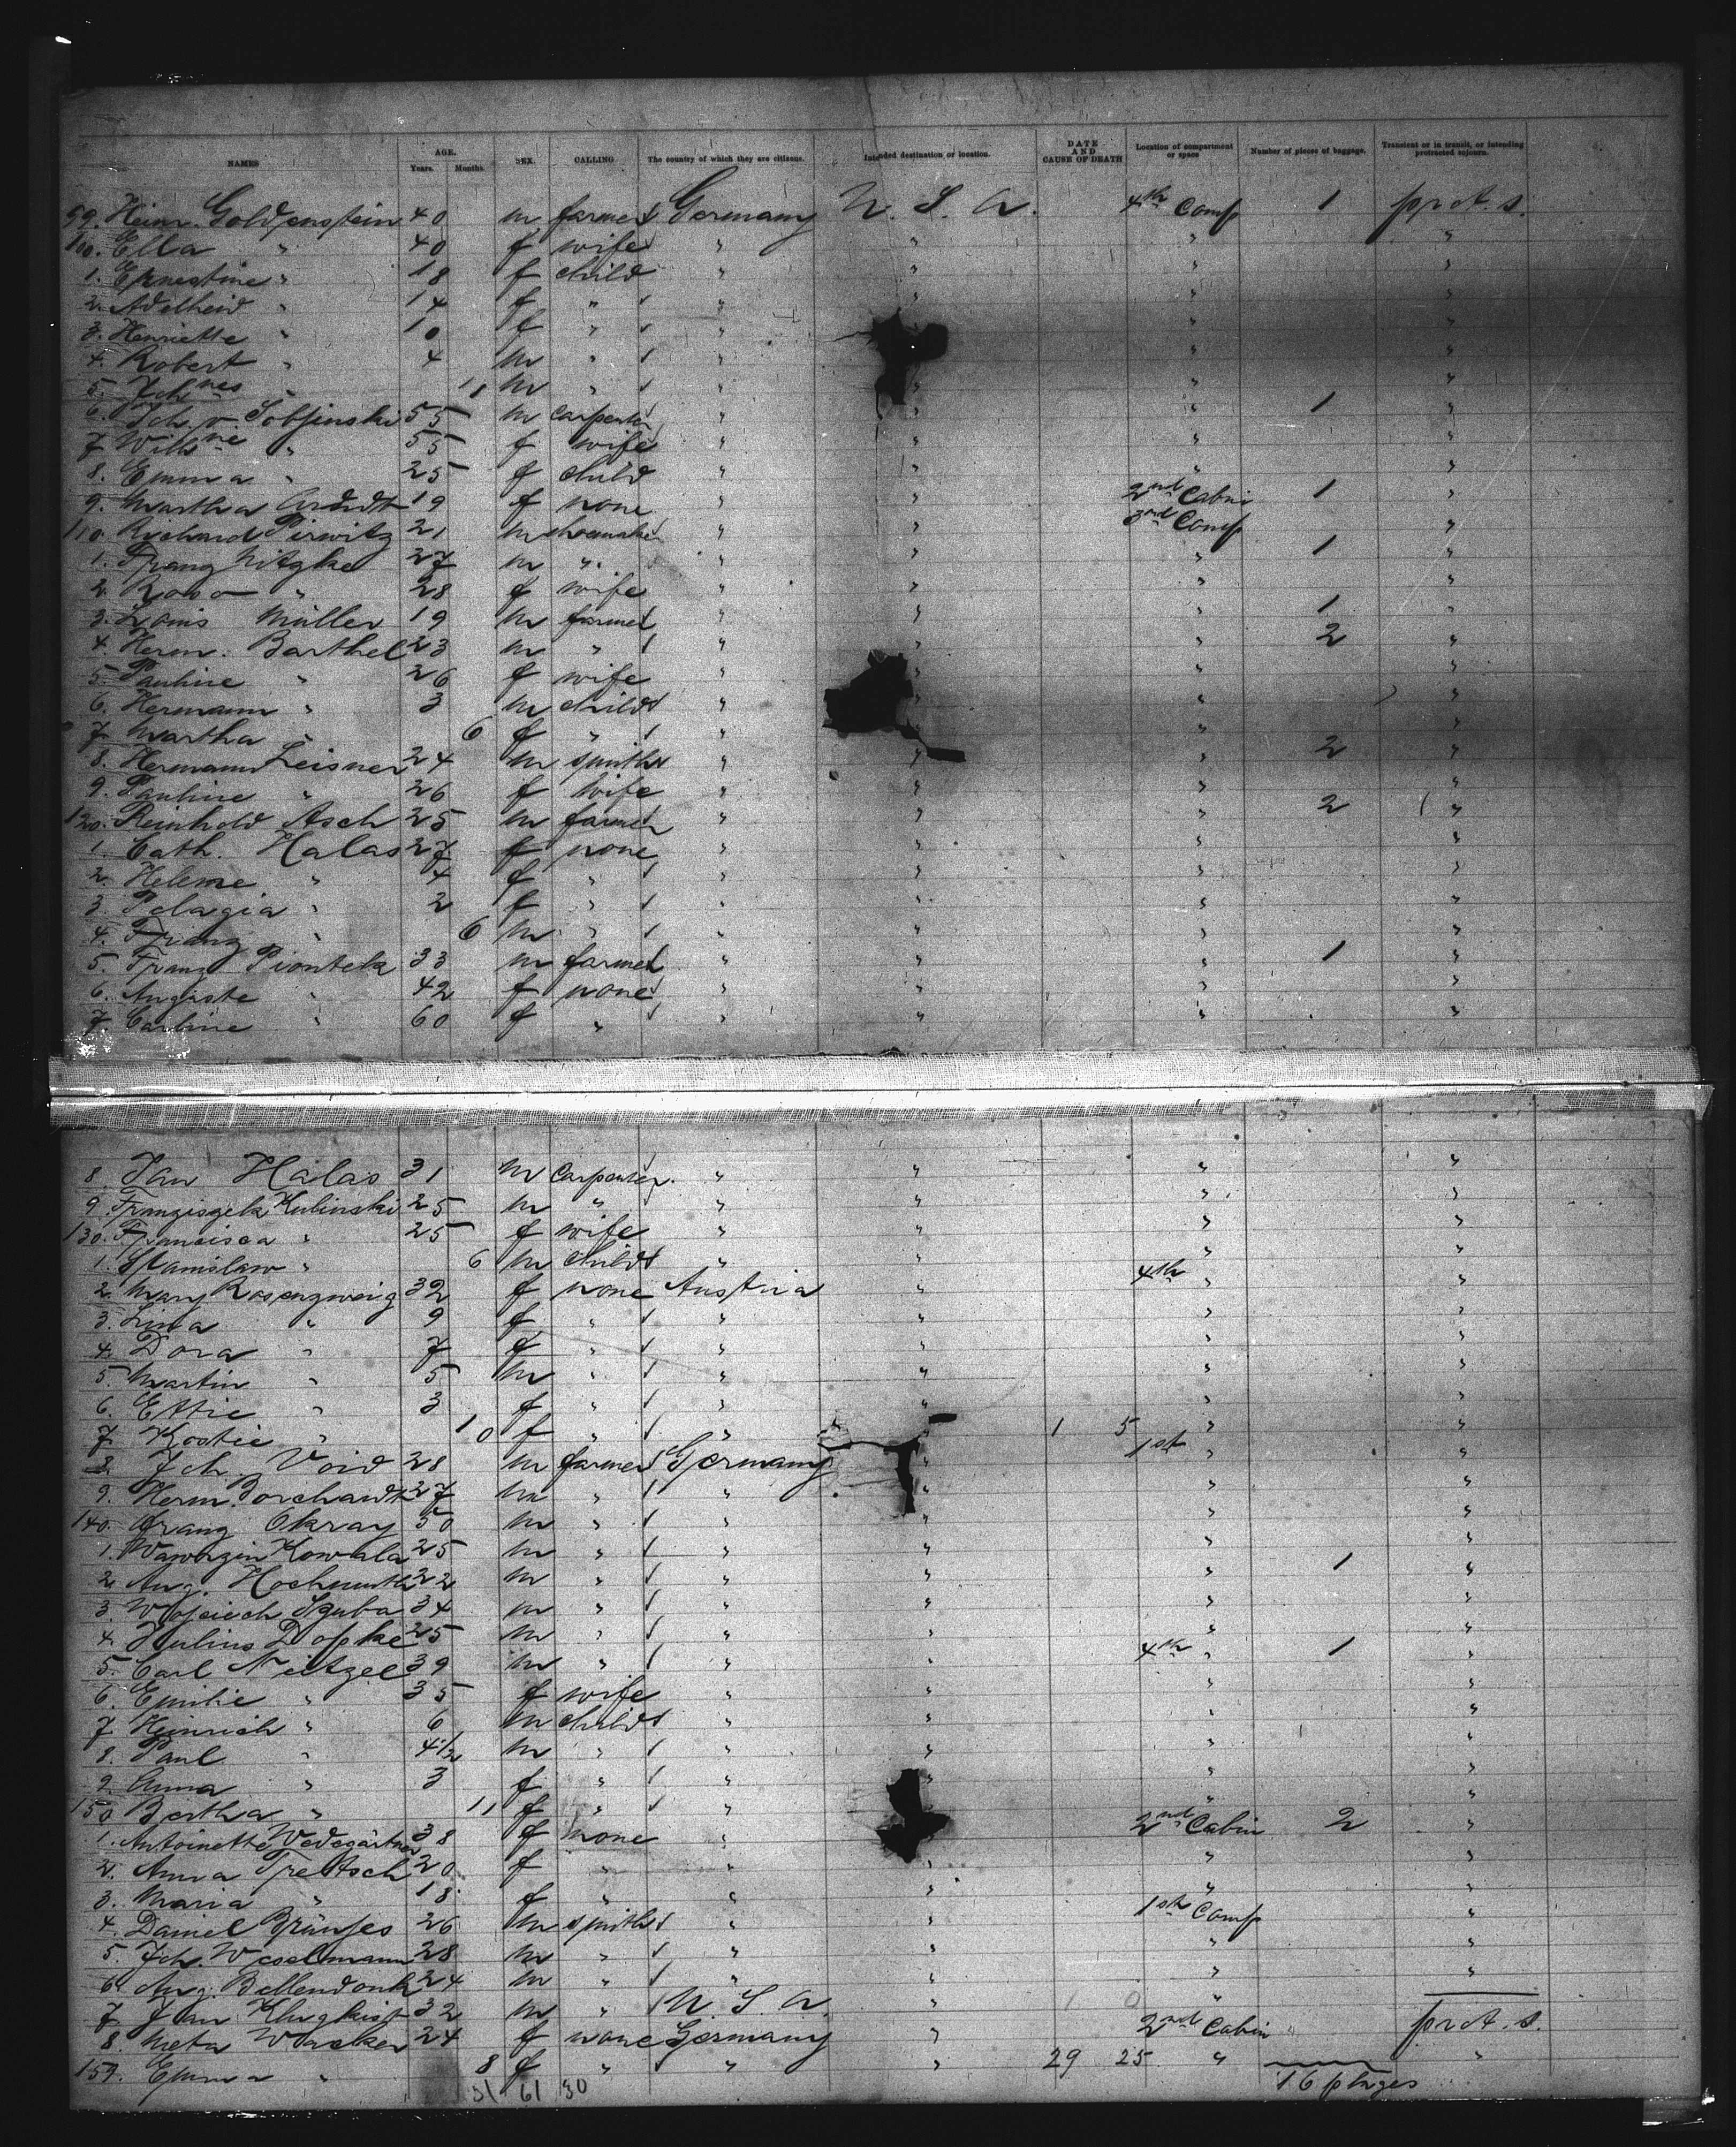 NAMES AGE. Years. Months. SEX. CALLING The country of which they are citizens. Intended destination or location. DATE AND CAUSE OF DEATH Location of compartment or space Number of pieces of baggage. Transient or in transit, or intending protracted sojourn.
99. Heinr. Goldenstein 40 m farmer Germany U. S. A. 4th Comp 1 prot. s.
100. Ella " 40 f wife " " " "
1. Ernestine " 18 f child " " " "
2. Adelheid " 14 f " " " " "
3. Henriette " 10 f " " " "
4. Robert " 4 m " " " "
5. Johnes " 11 m " " " " "
6. Joh. v. 55 m carpenter " " " 1 "
7 Wilhne " 55 f wife " " " "
8. Emma " 25 f child " " " "
9. Martha Arndt 19 f none " " 2nd Cabin 1 "
110. Richard Pirwitz 21 m shoemaker " " 3rd Comp "
1. Franz Nitzke 27 m " " " " 1 "
2. Rosa " 28 f wife " " " "
3. Louis Müller 19 m farmer " " " 1 "
4. Herm. Barthel 23 m " " " " 2 "
5. Pauline " 26 f wife " " " "
6. Hermann " 3 m child " " "
7. Martha " 6 f " " " " "
8. Hermann Leisner 24 m smith " " " 2 "
9. Pauline " 26 f wife " " " "
120. Reinhold Asch 25 m farmer " " " 2 "
1. Cath. Halas 27 f none " " " "
2. Helene " 4 f " " " " "
3. Pelagia " 2 f " " " " "
4. Franz " 6 m " " " " "
5. Franz Piontek 33 m farmer " " " 1 "
6. Auguste " 42 f none " " " "
7. Carline " 60 f " " " " "
8. Jan Halas 31 m carpenter " " " "
9. Franziszek Kulinski 25 m " " " " "
130. Francisca " 25 f wife " " " "
1. Stanislaw " 6 m child " " " "
2. Mary Rosenzweig 32 f none Austria " 4th " "
3. Lina " 9 f " " " " "
4. Dora " 7 f " " " " "
5. Martin " 5 m " " " " "
6. Ettie " 3 f " " " " "
7. " 10 f " " " 1 5 " "
8. Joh. Void 28 m farmer Germany " 1st " "
9. Herm. Borchardt 27 m " " " " "
140. Franz Okray 50 m " " " " "
1. Wawrzin Kowala 25 m " " " " "
2. Aug. Hochmuth 22 m " " " " 1 "
3. Wojciech Szuba 34 m " " " " "
4. Julius Dopke 25 m " " " " "
5. Carl Neitzel 39 m " " 4th " 1 "
6. Emilie " 35 f wife " " " "
7. Heinrich " 6 m child " " " "
8. Paul " 4 1/2 m " " " " "
9. Anna " 3 f " " " " "
150. Bertha " 11 f " " " "
1. Antoinette Wedegärtner 38 f none " 2nd Cabin 2 "
2. Anna Tretsch 20 f " " " "
3. Maria " 18 f " " " " "
4. Daniel Brünjes 26 m smith " " 1st Comp "
5. Joh. Wesselmann 28 m " " " " "
6. Aug. Bellendonk 24 m " " " " "
7. Jan Klugkist 32 m " U. S. A. " 1 0 "
8. Meta Wacker 24 f none Germany " 2nd Cabin prot. s.
159. Emma " 8 f " " " 29 25 " "
31 61 30 16 plages